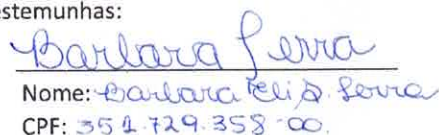 estemunhas:
Barbara Serra
Nome: Barbara Elis. Serra
CPF: 351.729.358-00.